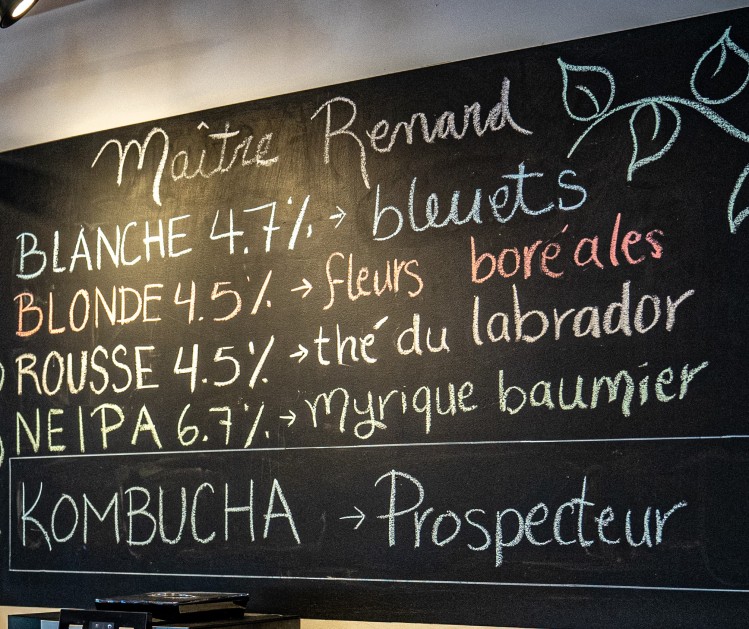 Maître Renard
BLANCHE 4.7% → bleuets
BLONDE 4.5% → fleurs boréales
ROUSSE 4.5% → thé du labrador
NEIPA 6.7% → myrique baumier
KOMBUCHA → Prospecteur